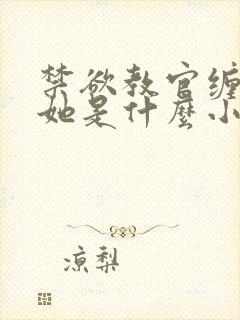 禁欲教官缠
她是什麼小
凉梨